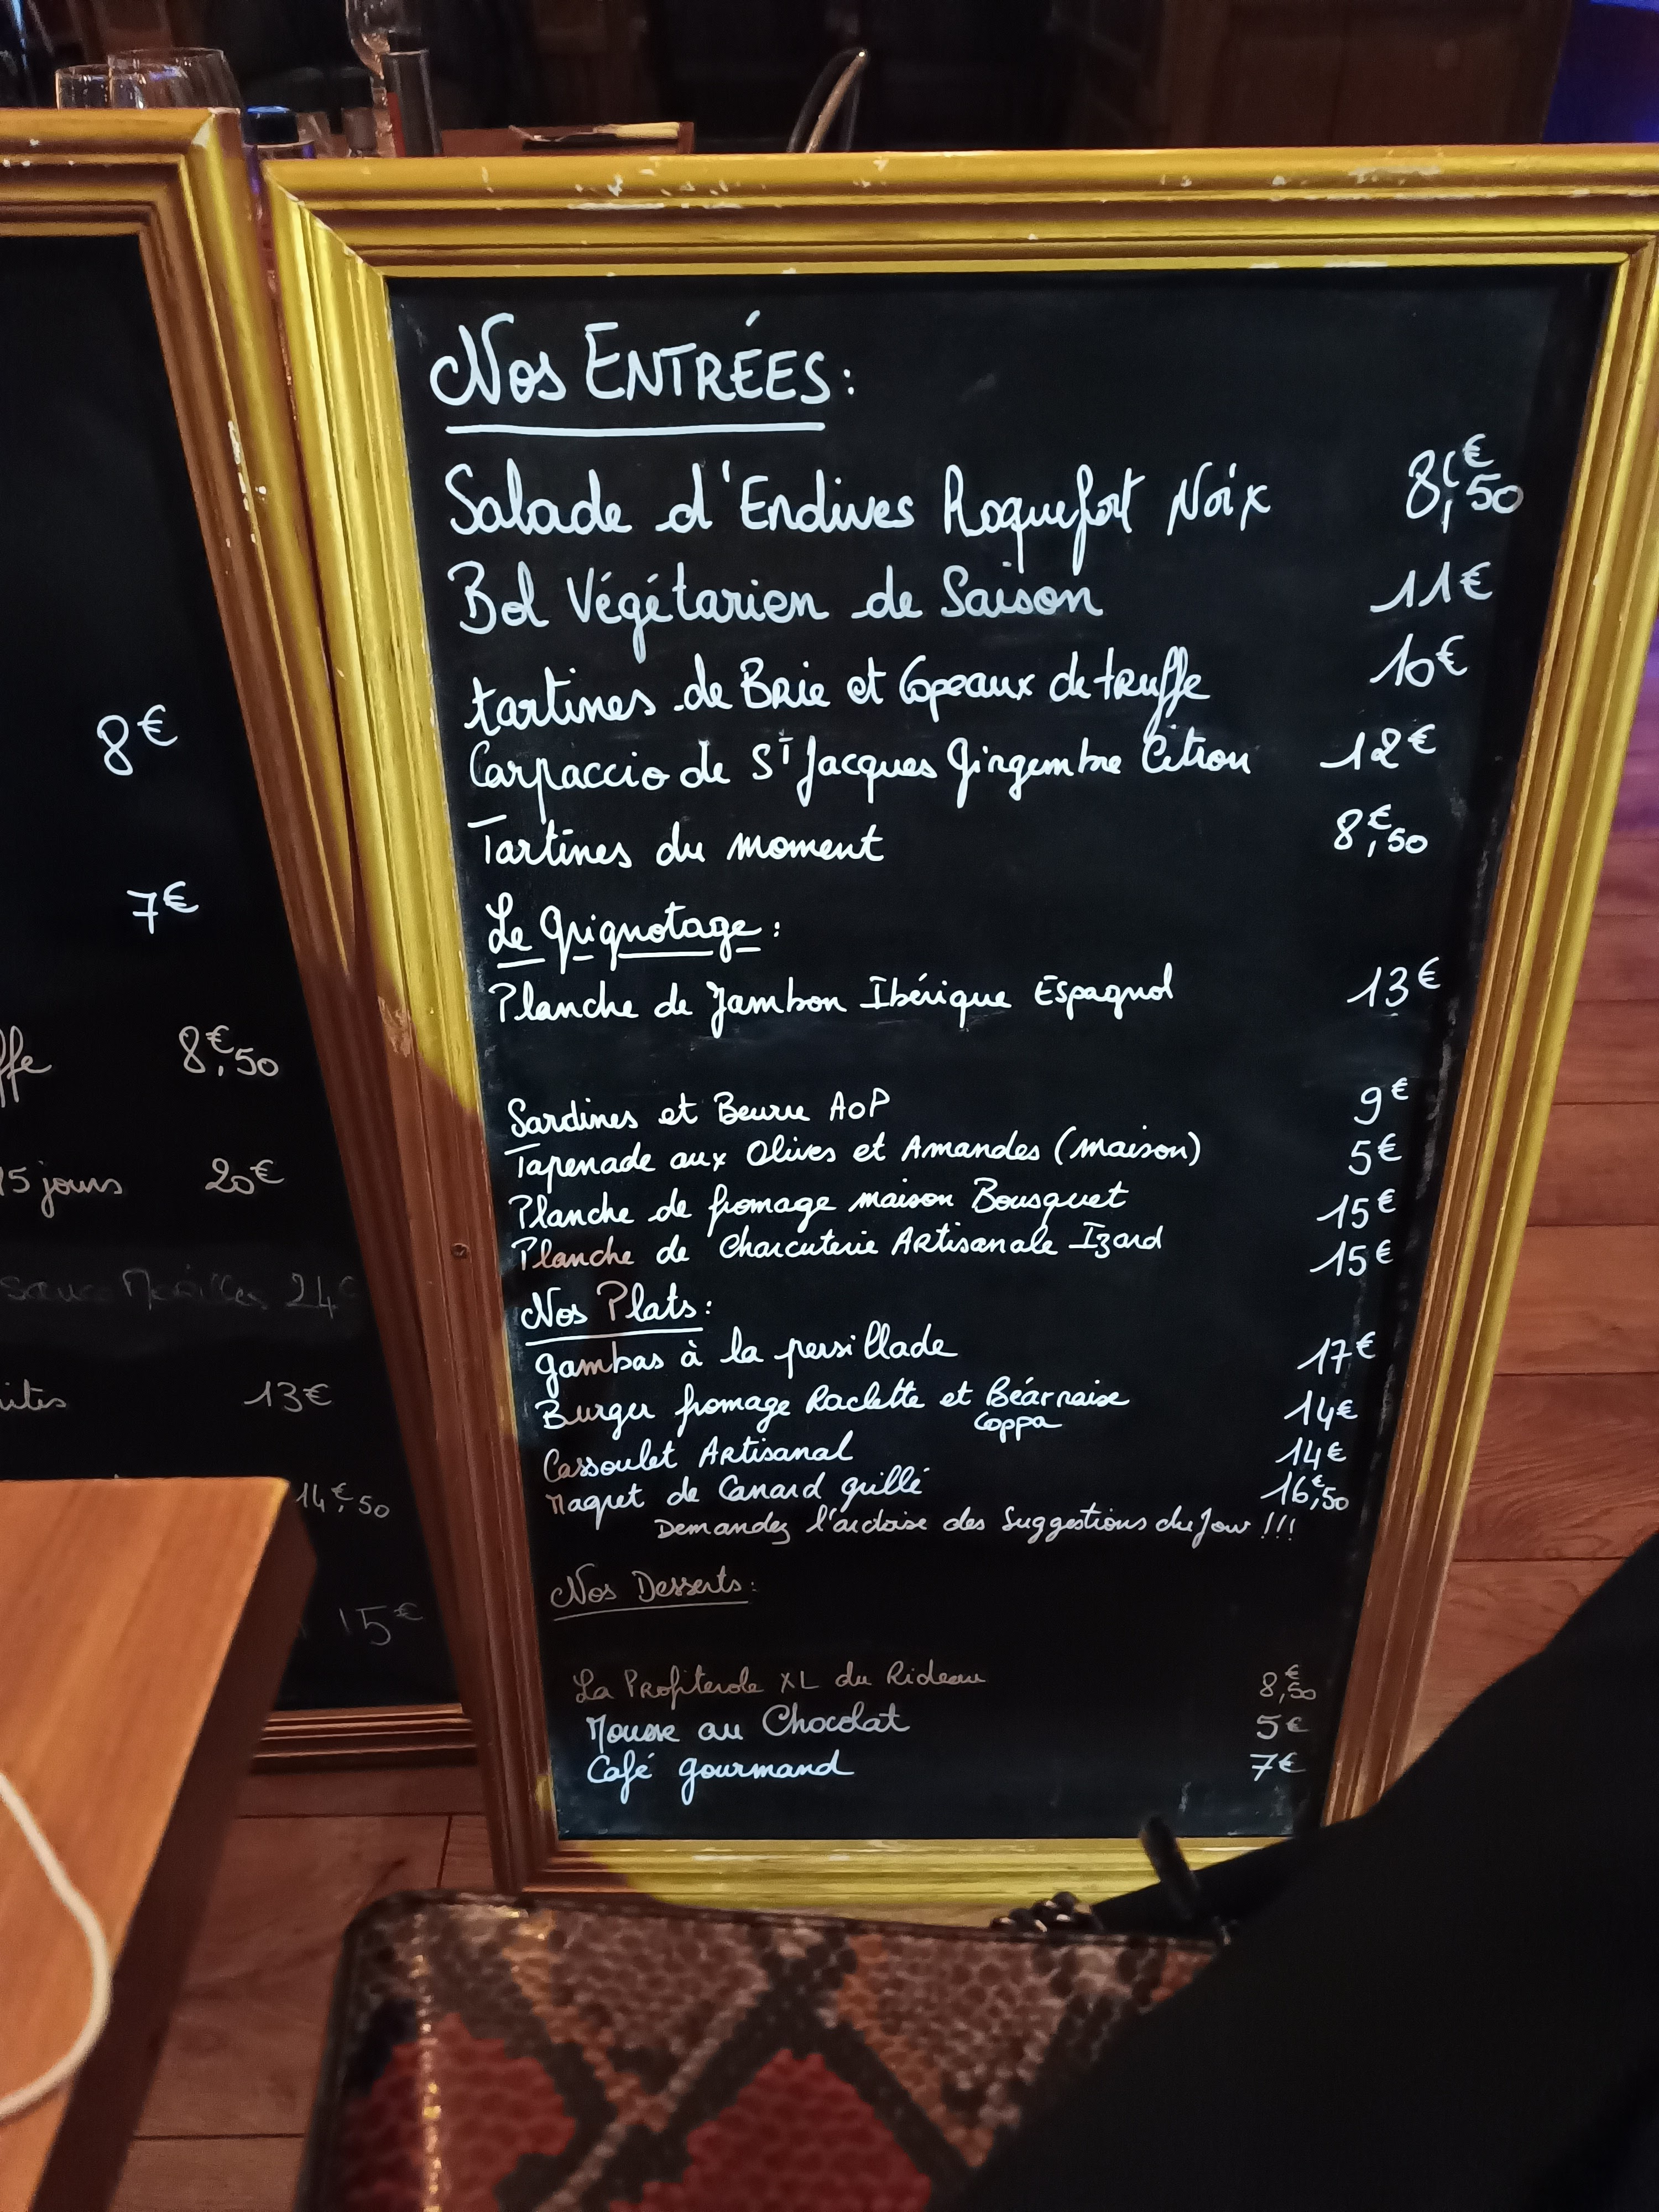 8€
7€
ffe 8€,50
15 jours 20€
sauce Morilles 24€
uites 13€
14€,50
15€
Nos ENTRÉES:
Salade d'Endives Roquefort Noix 8€,50
Bol Végétarien de Saison 11€
tartines de Brie et Copeaux de truffe 10€
Carpaccio de ST Jacques Gingembre Citron 12€
Tartines du moment 8€,50
Le Grignotage:
Planche de Jambon Ibérique Espagnol 13€
Sardines et Beurre AOP 9€
Tapenade aux Olives et Amandes (maison) 5€
Planche de fromage maison Bousquet 15€
Planche de Charcuterie Artisanale Izard 15€
Nos Plats:
gambas à la persillade 17€
Burger fromage Raclette et Béarnaise 14€
Coppa
Cassoulet Artisanal 14€
Magret de Canard grillé 16€,50
Demandez l'ardoise des Suggestions du Jour !!!
Nos Desserts:
La Profiterole XL du Rideau 8€,50
Mousse au Chocolat 5€
Café gourmand 7€